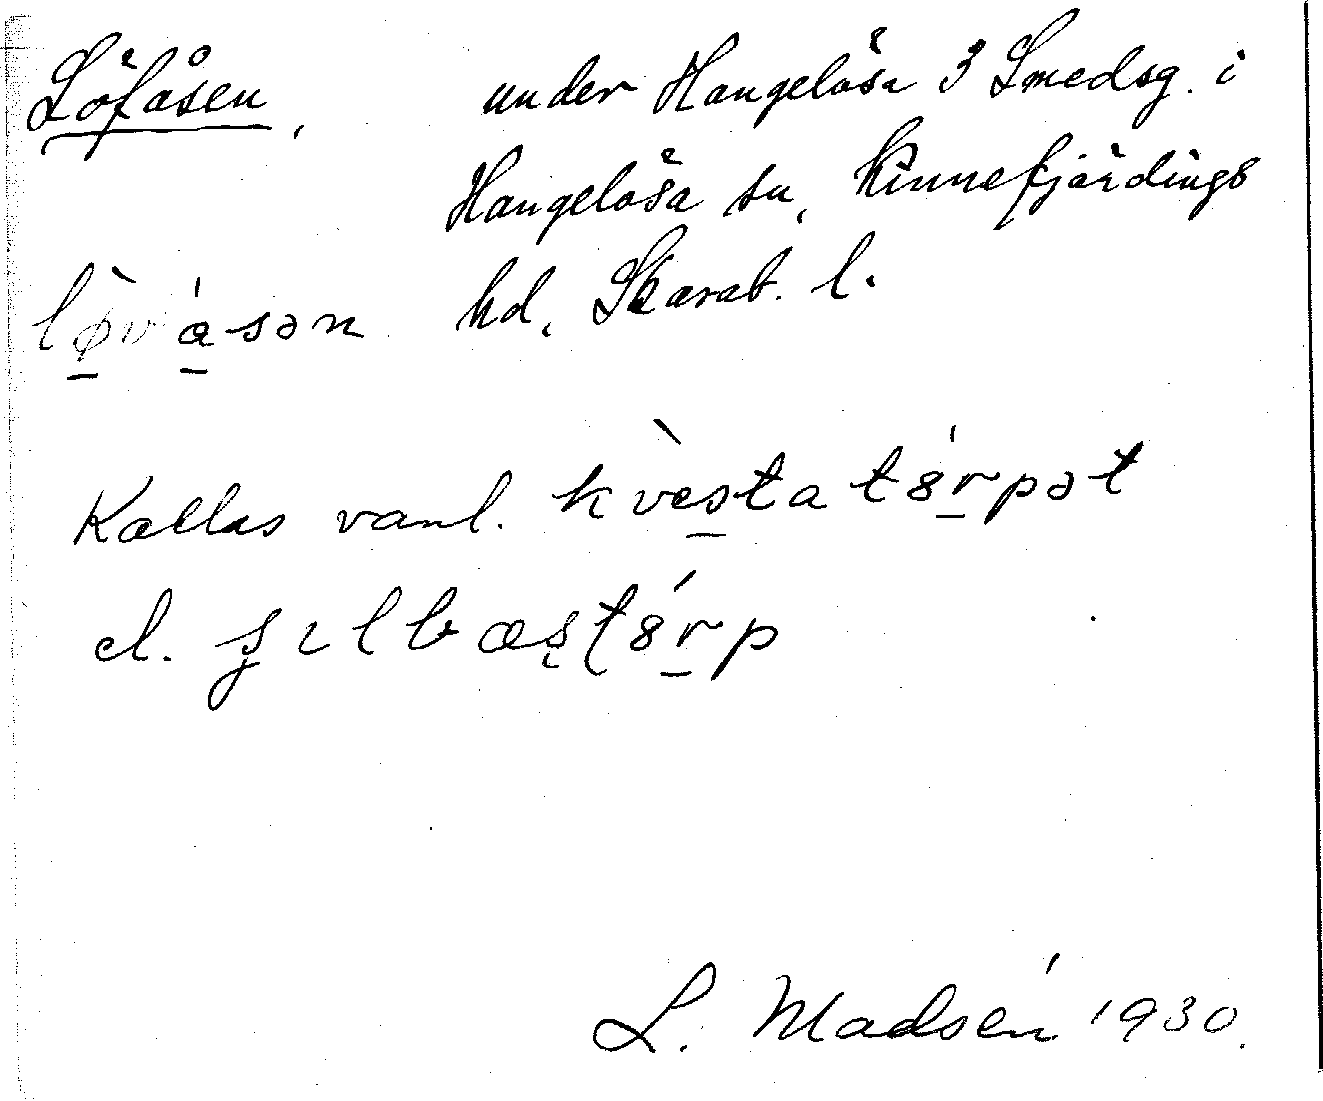 Löfåsen, under Hangelösa 3 Smedsg. i
Hangelösa sn, Kinnefjärdings
hd, Skarab. l.
lø̱̀vá̱sən
Kallas vanl. kvès̱tatȣ́ṟpət
el. ʂɩlbæʂtȣ́ṟp
L. Madsén 1930.